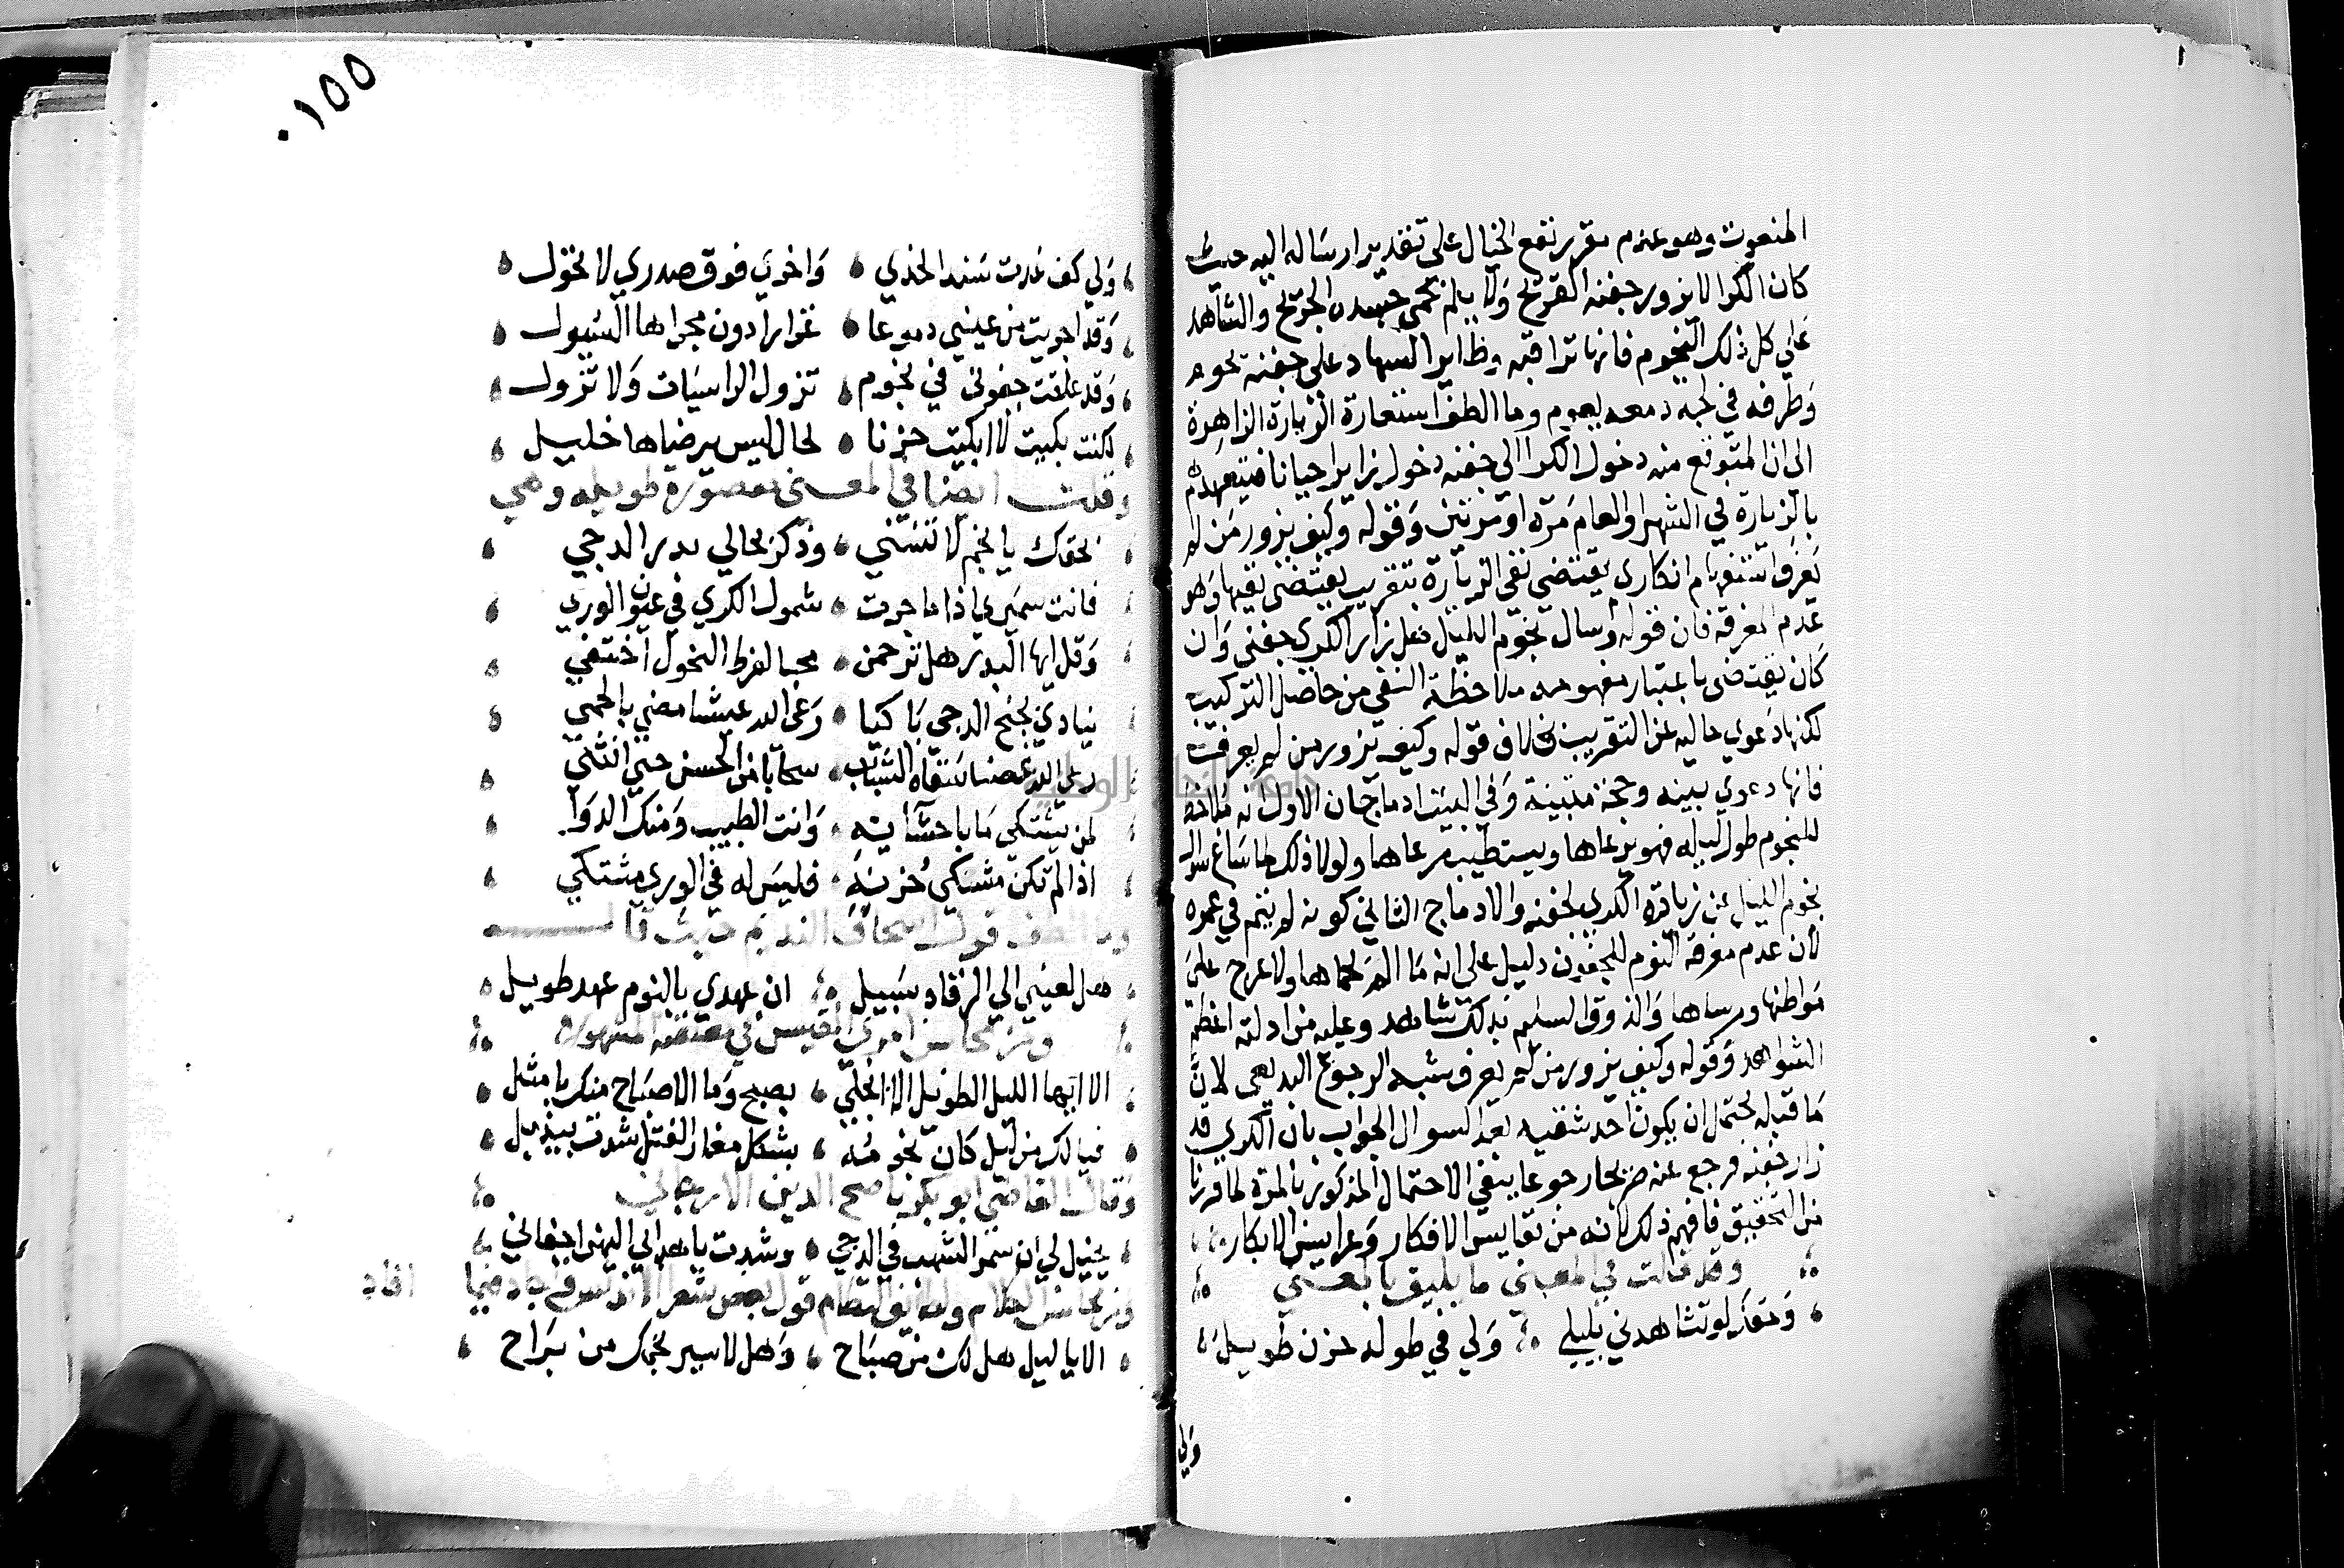 المنعوت وهو عندم مقرر نفع الخيال على تقدير ارساله اليه حيث
كان الكرا لا يزور جفنه القريح ولا يلم بحمى جسده الجريح والشاهد
على كل ذلك النجوم فانها تراقبه وطاير السهاد على جفنه يحوم
وطرفه في لجة دمعه يعوم وما الطف استعارة الزيارة الزاهرة
الى ان المتوقع منه دخول الكرا الى جفنه دخول زاير احيانا فيتعهده
بالزيارة في الشهر والعام مرة او مرتين وقوله وكيف يزور من لم
يعرف استفهام انكاري يقتضي نفي الزيارة بتقريب يقتضي نفيها وهو
عدم المعرفة فان قوله واسال نجوم الليل هل زار الكرى جفني وان
كان يقتضي باعتبار مفهومه ملاحظة النفي من حاصل التركيب
لكنها دعوي خاليه عن التقريب بخلاف قوله وكيف يزور من لم يعرف
فانها دعوي بينه وحجة مبينة وفي البيت ادماجان الاول انه ملاحظ
للنجوم طول ليله فهو يرعاها ويستطيب مرعاها ولولا ذلك لما ساغ سوال
نجوم الليل عن زيارة الكري لجفنه والادماج الثاني كونه لم ينم في عمره
لان عدم معرفة النوم للجفون دليل على انه ما الم بحماها ولا عرج على
مواطنها ومرساها والذوق السليم بذلك شاهد وعليه من ادلته اعظم
الشواهد وقوله وكيف يزور من لم يعرف شبه الرجوع البديعي لان
ما قبله يحتمل ان يكون احد شقيه بعد السوال الجواب بان الكري قد
زار جفنه فرجع عنه صريحا رجوعا ينفي الاحتمال المذكور بالمرة لما قررنا
من التحقيق فافهم ذلك لانه من نفايس الافكار وعرايس الابكار
وقد قلت في المعنى ما يليق بالمعنى
وحقك لو تشاهدني بليلي ولي في طوله حزن طويل
ولي
١٥٥
ولي كف غدت سند الخدي واخري فوق صدري لا تحول
وقد اجريت من عيني دموعا غزارا دون مجراها السيول
وقد علقت جفوني في نجوم تزول الراسيات ولا تزول
لكنت بكيت لا ابكيت حزنا لحال ليس يرضاها خليل
وقلت ايضا في المعنى مقصورة طويله وهي
بحقك يا نجم لا تنسني وذكر بحالي بدر الدجي
فانت سميري اذا ما جرت شمول الكري في عيون الوري
وقل ايها البدر هل ترحمن محبا لفرط النحول اختفي
ينادي بجنح الدجي باكيا رعى الله عيشا مضي بالحمي
رعى الله غصنا سقاه الشباب سحابا من الحسن حتي انثني
لمن يشتكي ما باحشايه وانت الطبيب ومنك الدوا
اذا لم تكن مشتكي حزنه فليس له في الوري مشتكي
وما الطف قول اسحاق النديم حيث قال
هل لعيني الي الرقاد سبيل ان عهدي بالنوم عهد طويل
ومن محاسن امري القيس في معلقته المشهورة
الا ايها الليل الطويل الا انجلي بصبح وما الاصباح منك بامثل
فيا لك من ليل كان نجومه بشكل مغار الفتل شدت بيذبل
وقال القاضي ابو بكر ناصح الدين الارجاني
يخيل لي ان سمر الشهب في الدجي وشدت باهدابي اليهن اجفاني
ومن محاسن الكلام ولطايف النظام قول بعض شعرا الاندلس واجاد فيما افاد
الا يا ليل هل لك من صباح وهل لاسير نجمك من براح